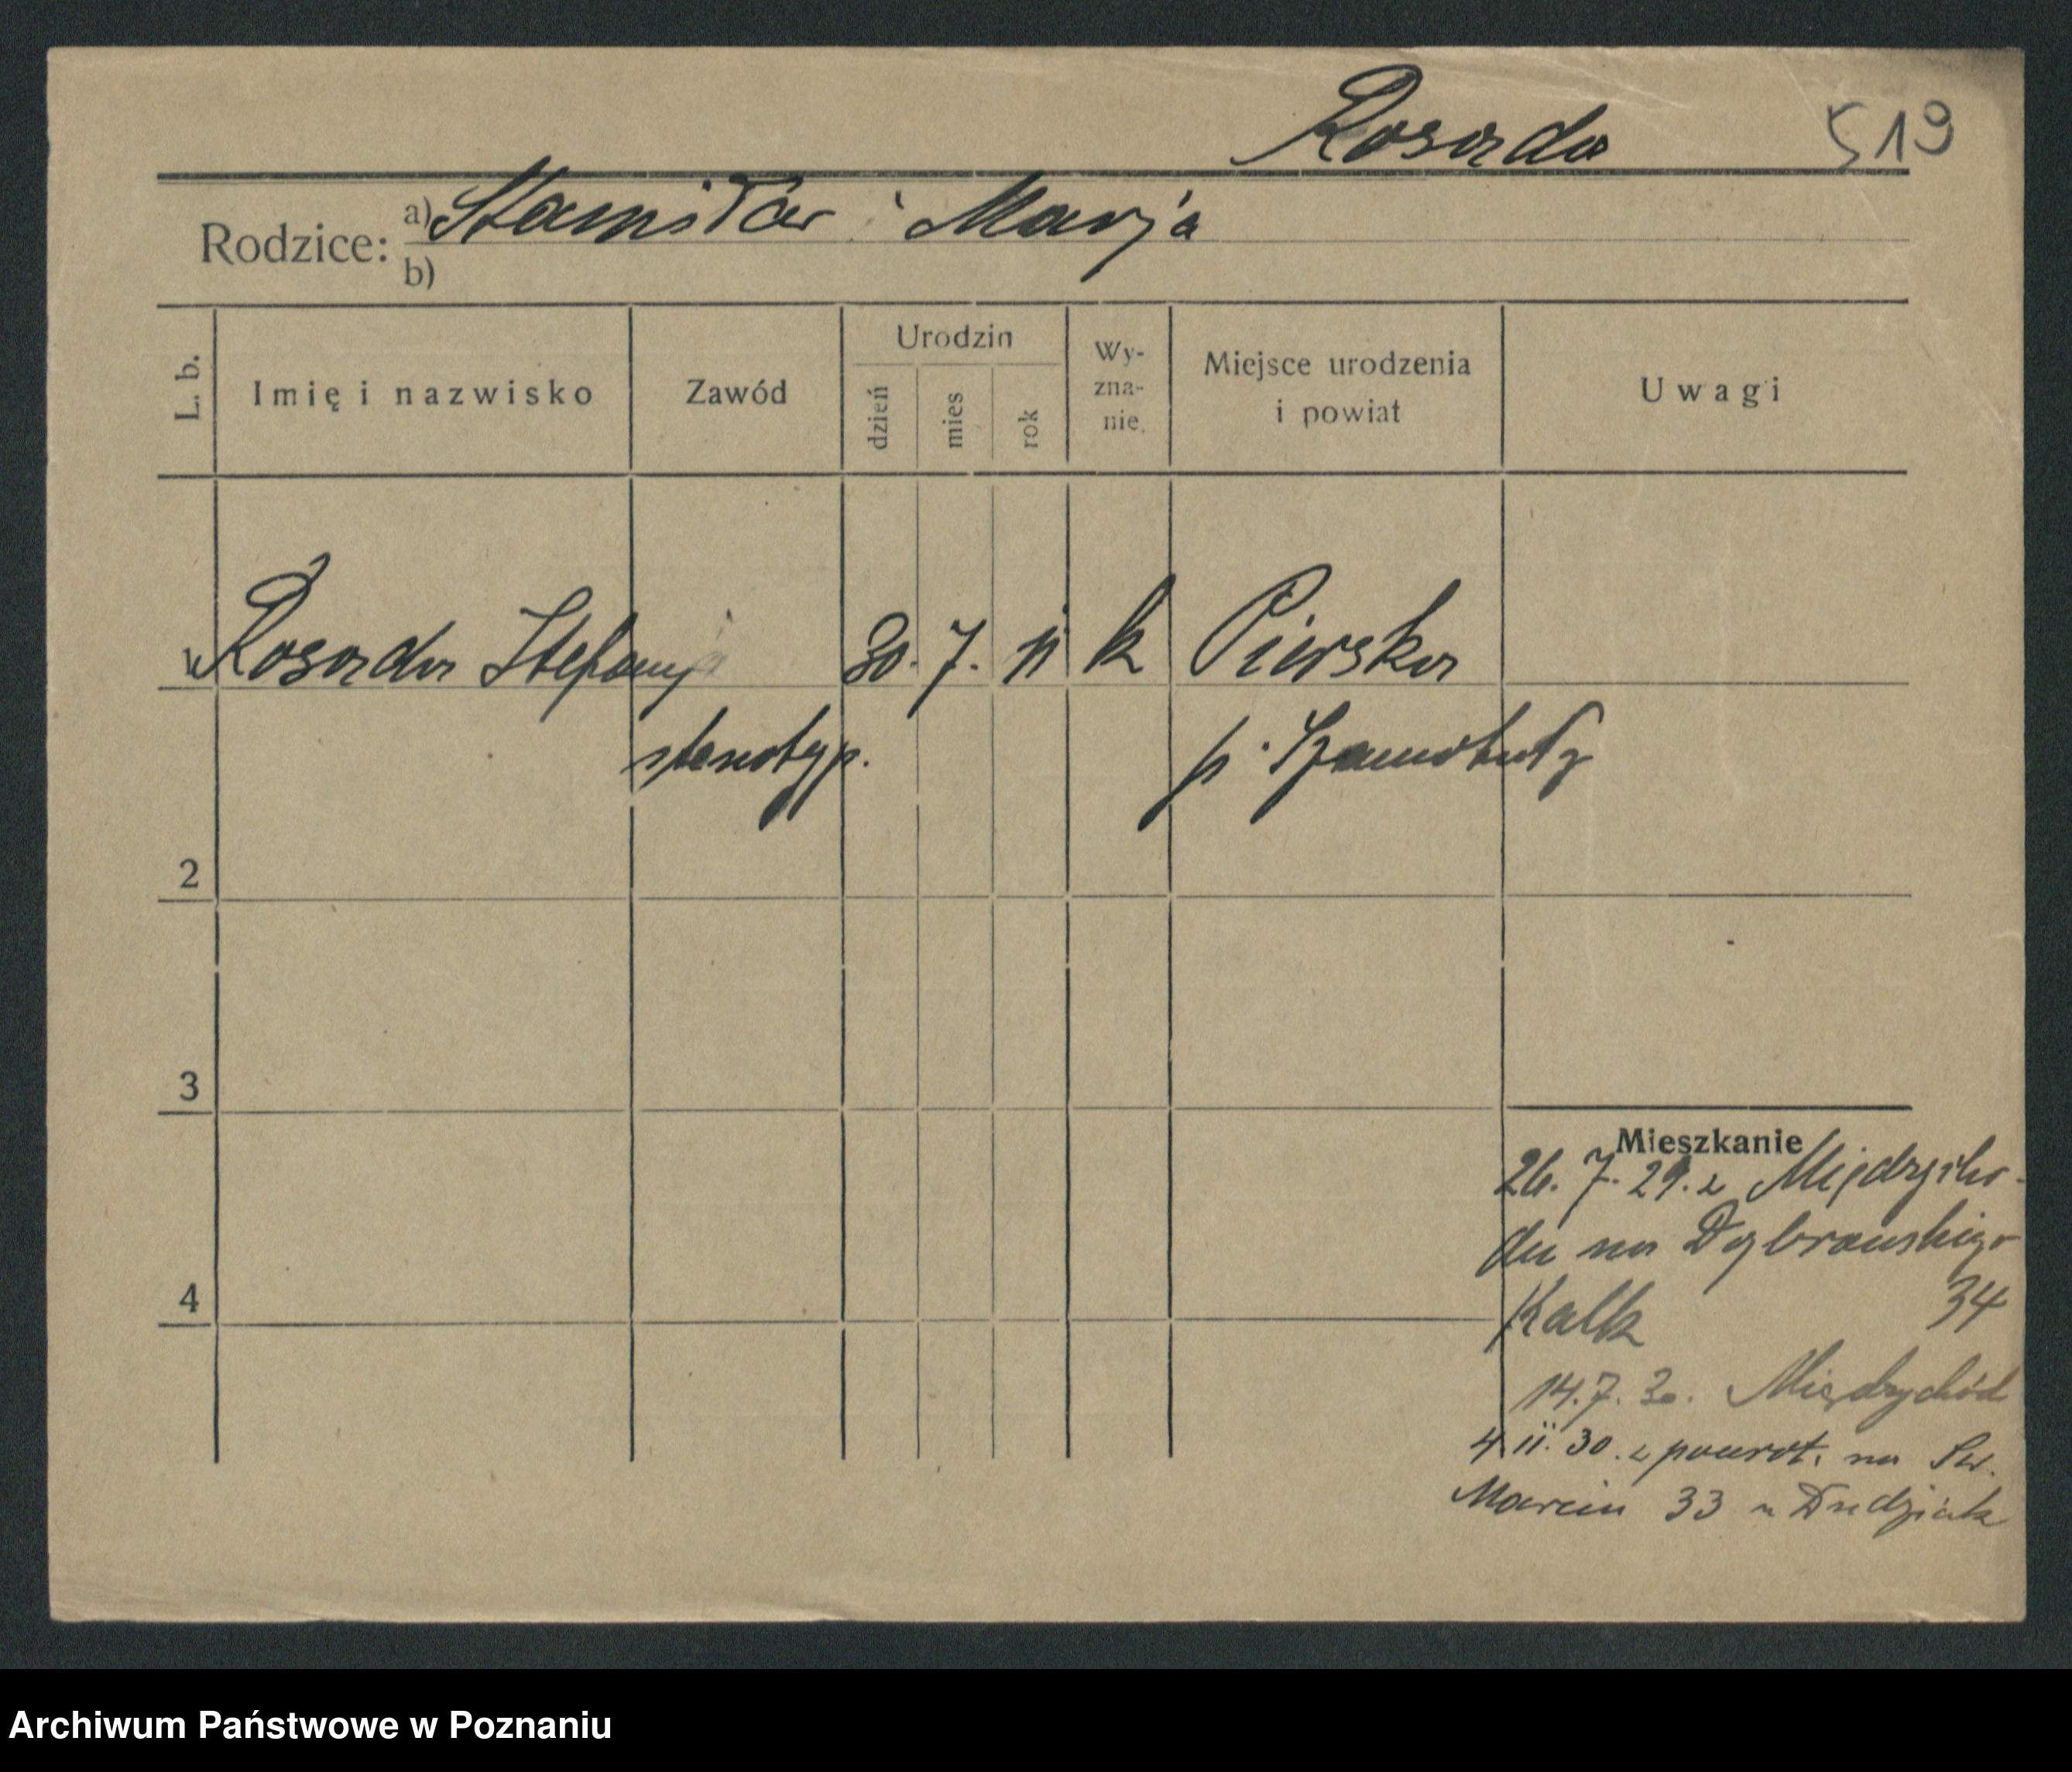 Rosada 519
Rodzice: a) Stanisław i Marja
b)
L. b. Imię i nazwisko Zawód Urodzin dzień mies rok Wy-zna-nie. Miejsce urodzenia i powiat Uwagi
1 Rosada Stefanja 30. 7. 11 k Pierska
stenotyp. p. Szamotuły
2
3
4
Mieszkanie
26. 7. 29. z Międzycho-
du na Dąbrowskiego
Kalk 34
14. 7. 30. Międzychód
4 11. 30. z powrot. na Św.
Marcin 33 u Dudziak
Archiwum Państwowe w Poznaniu